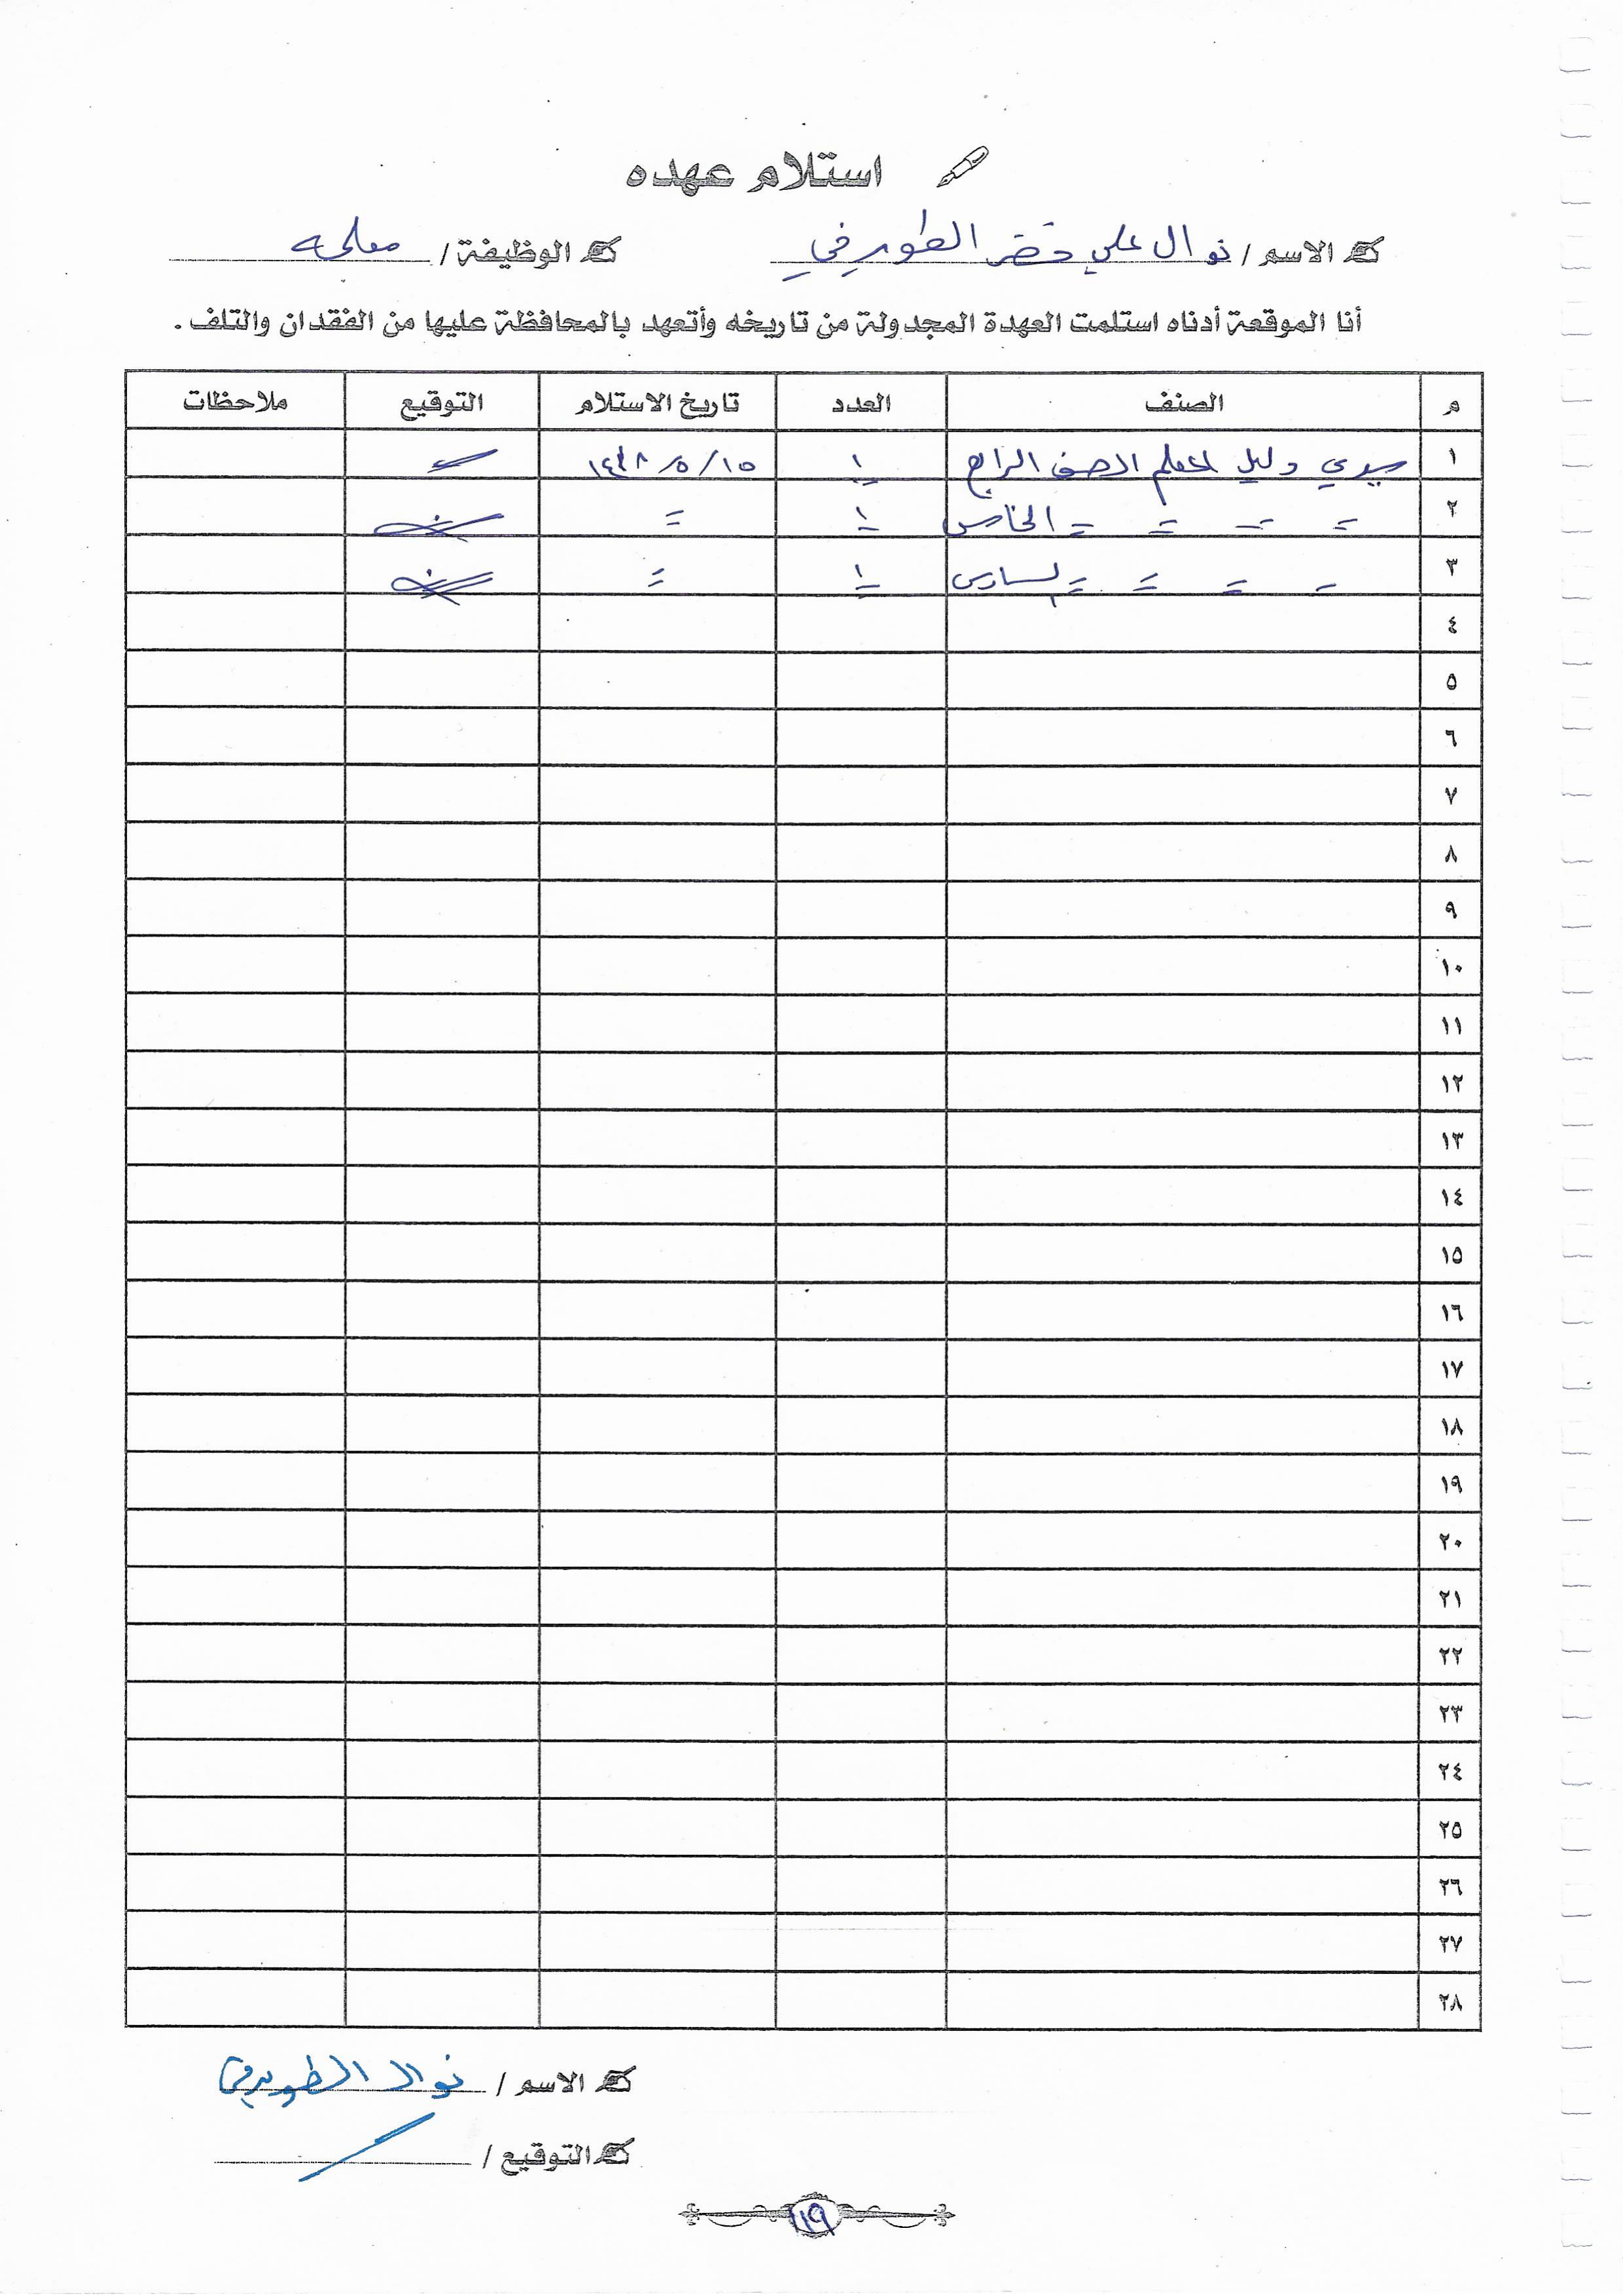 استلام عهده
الاسم / نوال علي خضر الطويرقي الوظيفة / معلمه
أنا الموقعة أدناه استلمت العهدة المجدولة من تاريخه وأتعهد بالمحافظة عليها من الفقدان والتلف .
م الصنف العدد تاريخ الاستلام التوقيع ملاحظات
١ سيدي دليل المعلم الصف الرابع ١ ١٥/٥/١٤٣٨
٢ = = = = الخامس ١ =
٣ = = = = السادس ١ =
٤
٥
٦
٧
٨
٩
١٠
١١
١٢
١٣
١٤
١٥
١٦
١٧
١٨
١٩
٢٠
٢١
٢٢
٢٣
٢٤
٢٥
٢٦
٢٧
٢٨
الاسم / نوال الطويرقي
التوقيع /
١١٩